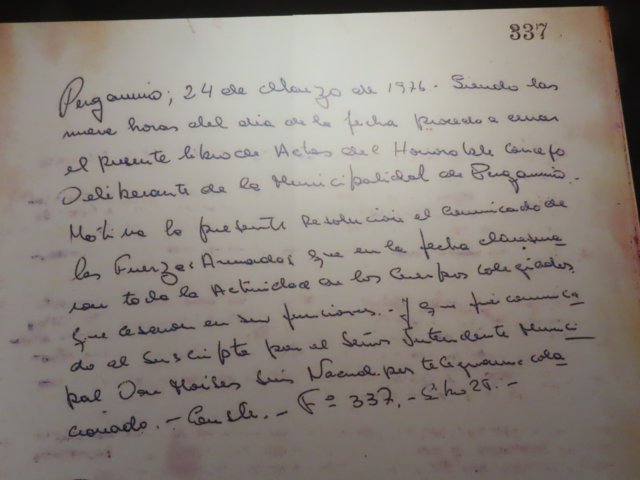 337
Pergamino; 24 de Marzo de 1976.- Siendo las
nueve horas del dia de la fecha procedo a cerrar
el presente libro de Actas del Honorable Concejo
Deliberante de la Municipalidad de Pergamino.
Motiva la presente resolución el comunicado de
las Fuerzas Armadas que en la fecha clausura
ron toda la Actividad de los Cuerpos colegiados
que cesaron en sus funciones.- Y que fué comunica
do al suscripto por el Señor Intendente Munici
pal Don Moises Luis por telegrama cola
cionado.- Conste.- Fº 337.-